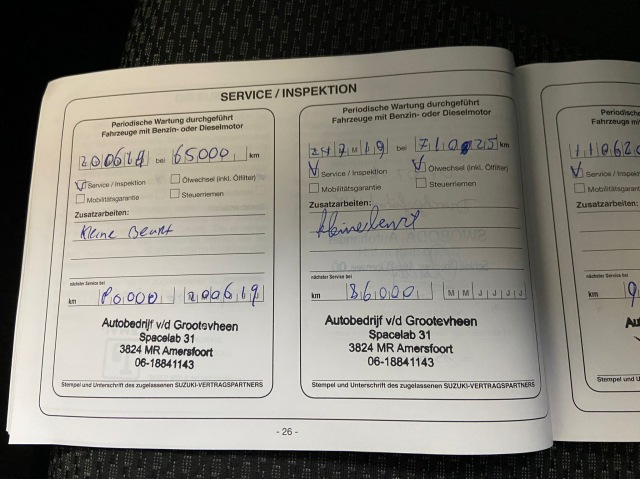 SERVICE / INSPEKTION
Periodische Wartung durchgeführt
Fahrzeuge mit Benzin- oder Dieselmotor
200619 bei 65000 km
Service / Inspektion
Ölwechsel (inkl. Ölfilter)
Mobilitätsgarantie
Steuerriemen
Zusatzarbeiten:
Kleine Beurt
nächster Service bei
km 80.000 200619
Autobedrijf v/d Grootevheen
Spacelab 31
3824 MR Amersfoort
06-18841143
Stempel und Unterschrift des zugelassenen SUZUKI-VERTRAGSPARTNERS
Periodische Wartung durchgeführt
Fahrzeuge mit Benzin- oder Dieselmotor
bei km
Service / Inspektion
Ölwechsel (inkl. Ölfilter)
Mobilitätsgarantie
Steuerriemen
Zusatzarbeiten:
kleine beurt
nächster Service bei
km 86000 M M J J J J
Autobedrijf v/d Grootevheen
Spacelab 31
3824 MR Amersfoort
06-18841143
Stempel und Unterschrift des zugelassenen SUZUKI-VERTRAGSPARTNERS
- 26 -
Periodische
Fahrzeuge m
110620
Service / Inspekt
Mobilitätsgaran
Zusatzarbeiten:
nächster Service bei
km 9
Stempel und Un